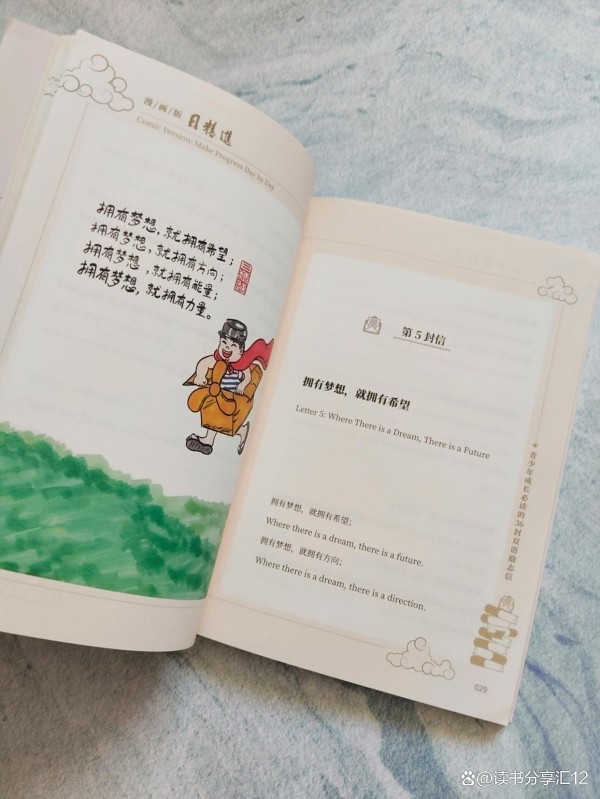 漫/画/版 日精进
Comic Version: Make Progress Day by Day
拥有梦想，就拥有希望；
拥有梦想，就拥有方向；
拥有梦想，就拥有能量；
拥有梦想，就拥有力量。
第5封信
拥有梦想，就拥有希望
Letter 5: Where There is a Dream, There is a Future
拥有梦想，就拥有希望；
Where there is a dream, there is a future.
拥有梦想，就拥有方向；
Where there is a dream, there is a direction.
青少年成长必读的36封双语励志信
029
@读书分享汇12